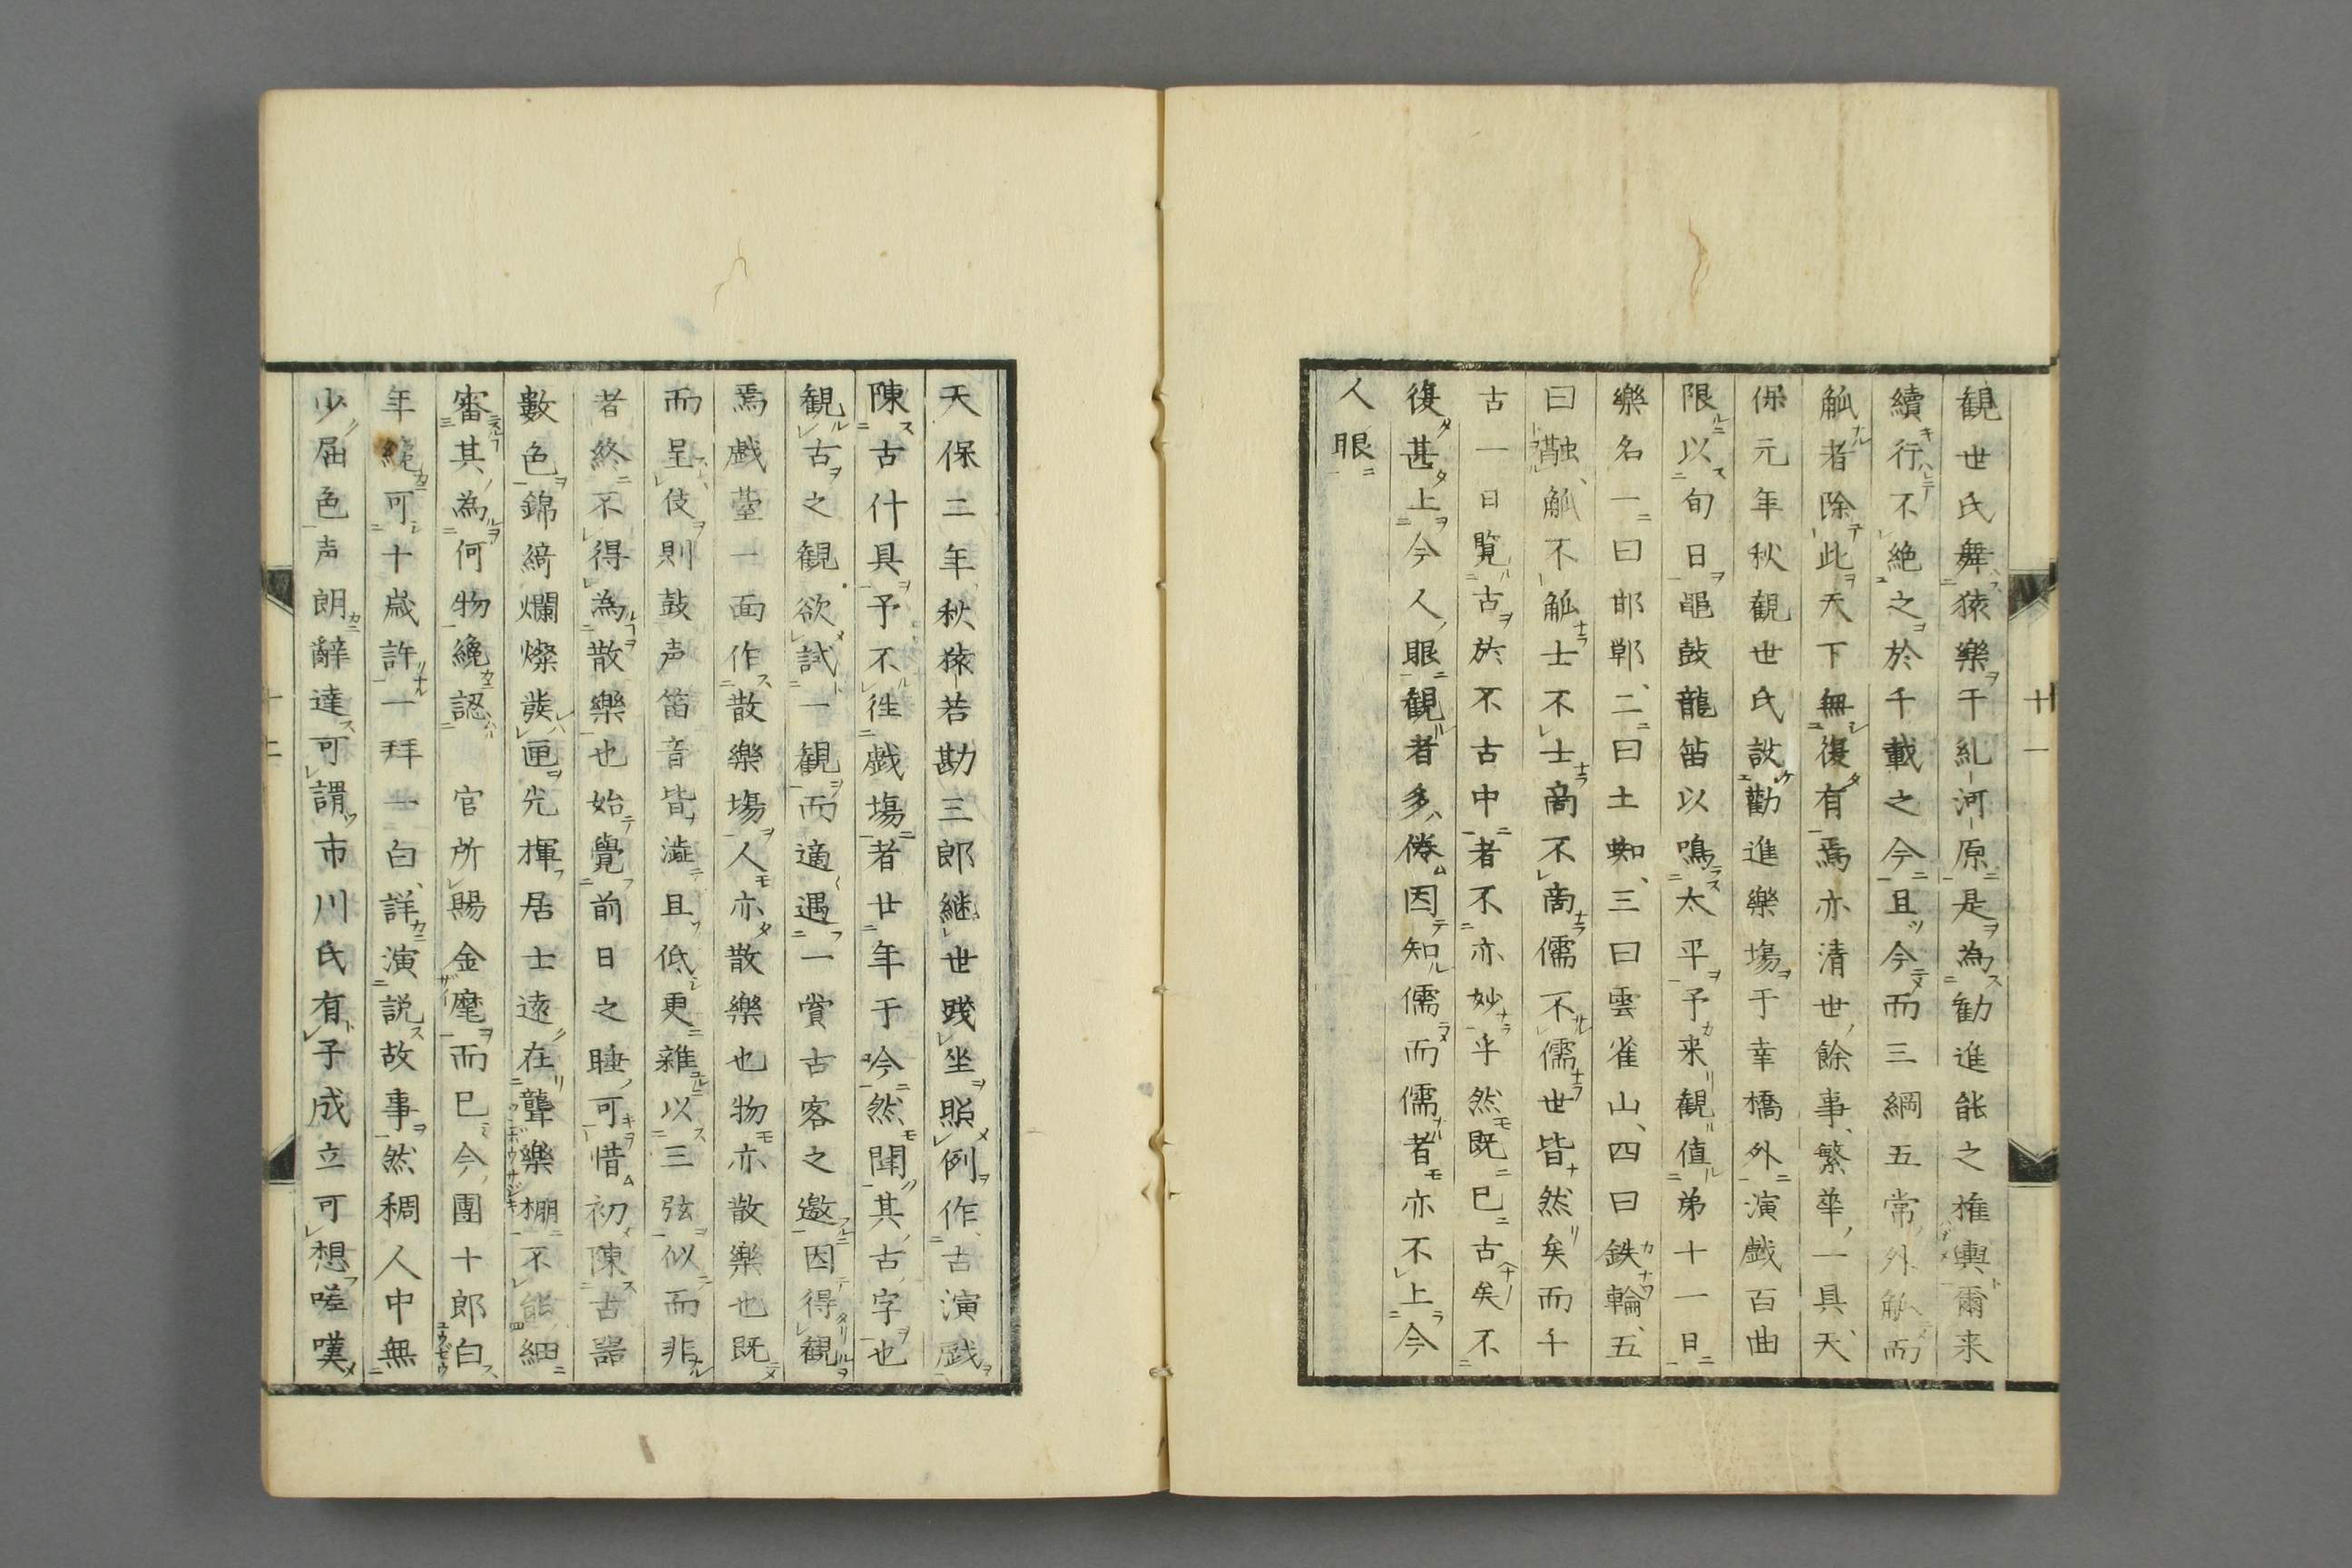 観世氏舞猿樂于糺河原是為勧進能之権輿爾来
續行不絶之於千載之今且今而三綱五常外觚而
觚者除此天下無復有焉亦清世餘事繁華一具天
保元年秋観世氏設勸進樂場于幸橋外演戯百曲
限以旬日鼉鼓龍笛以鳴太平予来観値弟十一日
樂名一曰邯鄲、二曰土蜘、三曰雲雀山、四曰鉄輪、五
曰融、觚不觚士不士商不商儒不儒世皆然矣而千
古一日覧古於不古中者不亦妙乎然既已古矣不
復甚上今人眼観者多倦因知儒而儒者亦不上今
人眼
十一
天保三年秋猿若勘三郎継世踐坐照例作古演戯
陳古什具予不徃戯場者廿年于今然聞其古字也
観古之観欲試一観而適遇一賞古客之邀因得観
焉戯臺一面作散樂場人亦散樂也物亦散樂也既
而呈伎則鼓声笛音皆澁且低更雜以三弦似而非
者終不得為散樂也始覺前日之睡可惜初陳古器
數色錦綺爛燦發匣光揮居士遠在聾樂棚不能細
審其為何物纔認　官所賜金麾而已今團十郎白
年纔可十歳許一拜一白、詳演説故事然稠人中無
少屈色声朗辭達可謂市川氏有子成立可想嗟嘆
十二